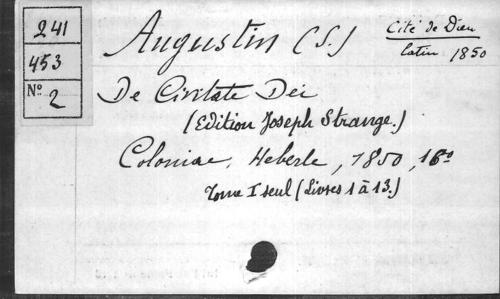 241
453
No 2
Augustin (S.)
Cité de Dieu
latin 1850
De Civitate Dei
(Edition Joseph Strange.)
Coloniae, Heberle, 1850, 16o
Tome I seul (Livres 1 à 13.)